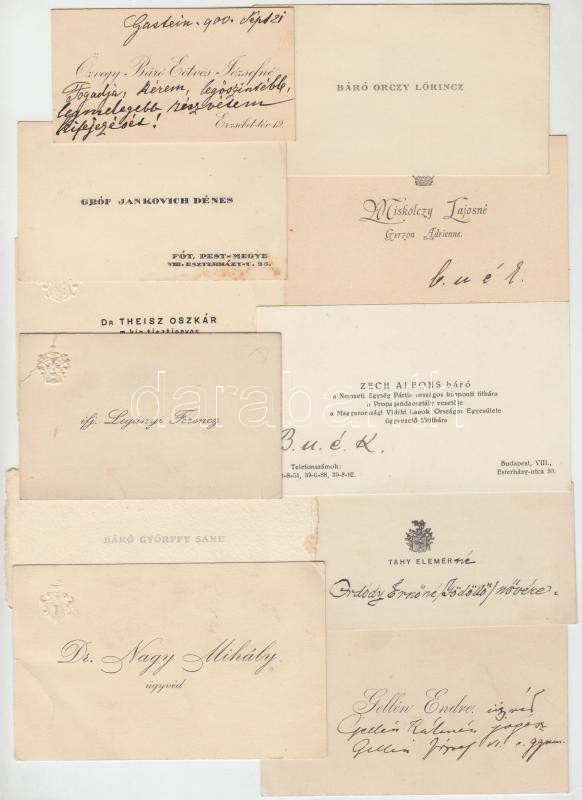 Gastein. 900. Sept 21
Özvegy Báró Eötvös Józsefné
Fogadja, kérem, legőszintébb,
legmelegebb részvétem
kifejezését!
Erzsébet-tér 19.
BÁRÓ ORCZY LŐRINCZ
GRÓF JANKOVICH DÉNES
FÓT, PEST-MEGYE
VIII. ESZTERHÁZY-U. 25.
Miskolczy Lajosné
Gerzon Adrienne.
b. u é k.
DR THEISZ OSZKÁR
m. kir. tisztiorvos
ifj. Legányi Ferencz
ZECH ALFONS báró
a Nemzeti Egység Pártja országos központi titkára
a Propagandaosztály vezetője
a Magyarországi Vidéki Lapok Országos Egyesülete
ügyvezető főtitkára
B. u. é. k.
Telefonszámok:
-8-51, 39-6-88, 39-8-92.
Budapest, VIII.,
Esterházy-utca 30.
BÁRÓ GYŐRFFY SAMU
TAHY ELEMÉRné
Ordódy Ernőné /Gödöllő/ nővére.
Dr. Nagy Mihály
ügyvéd
Gellén Endre.
Gellén Kálmán
Gellén József VI. o. gym.
darabanth